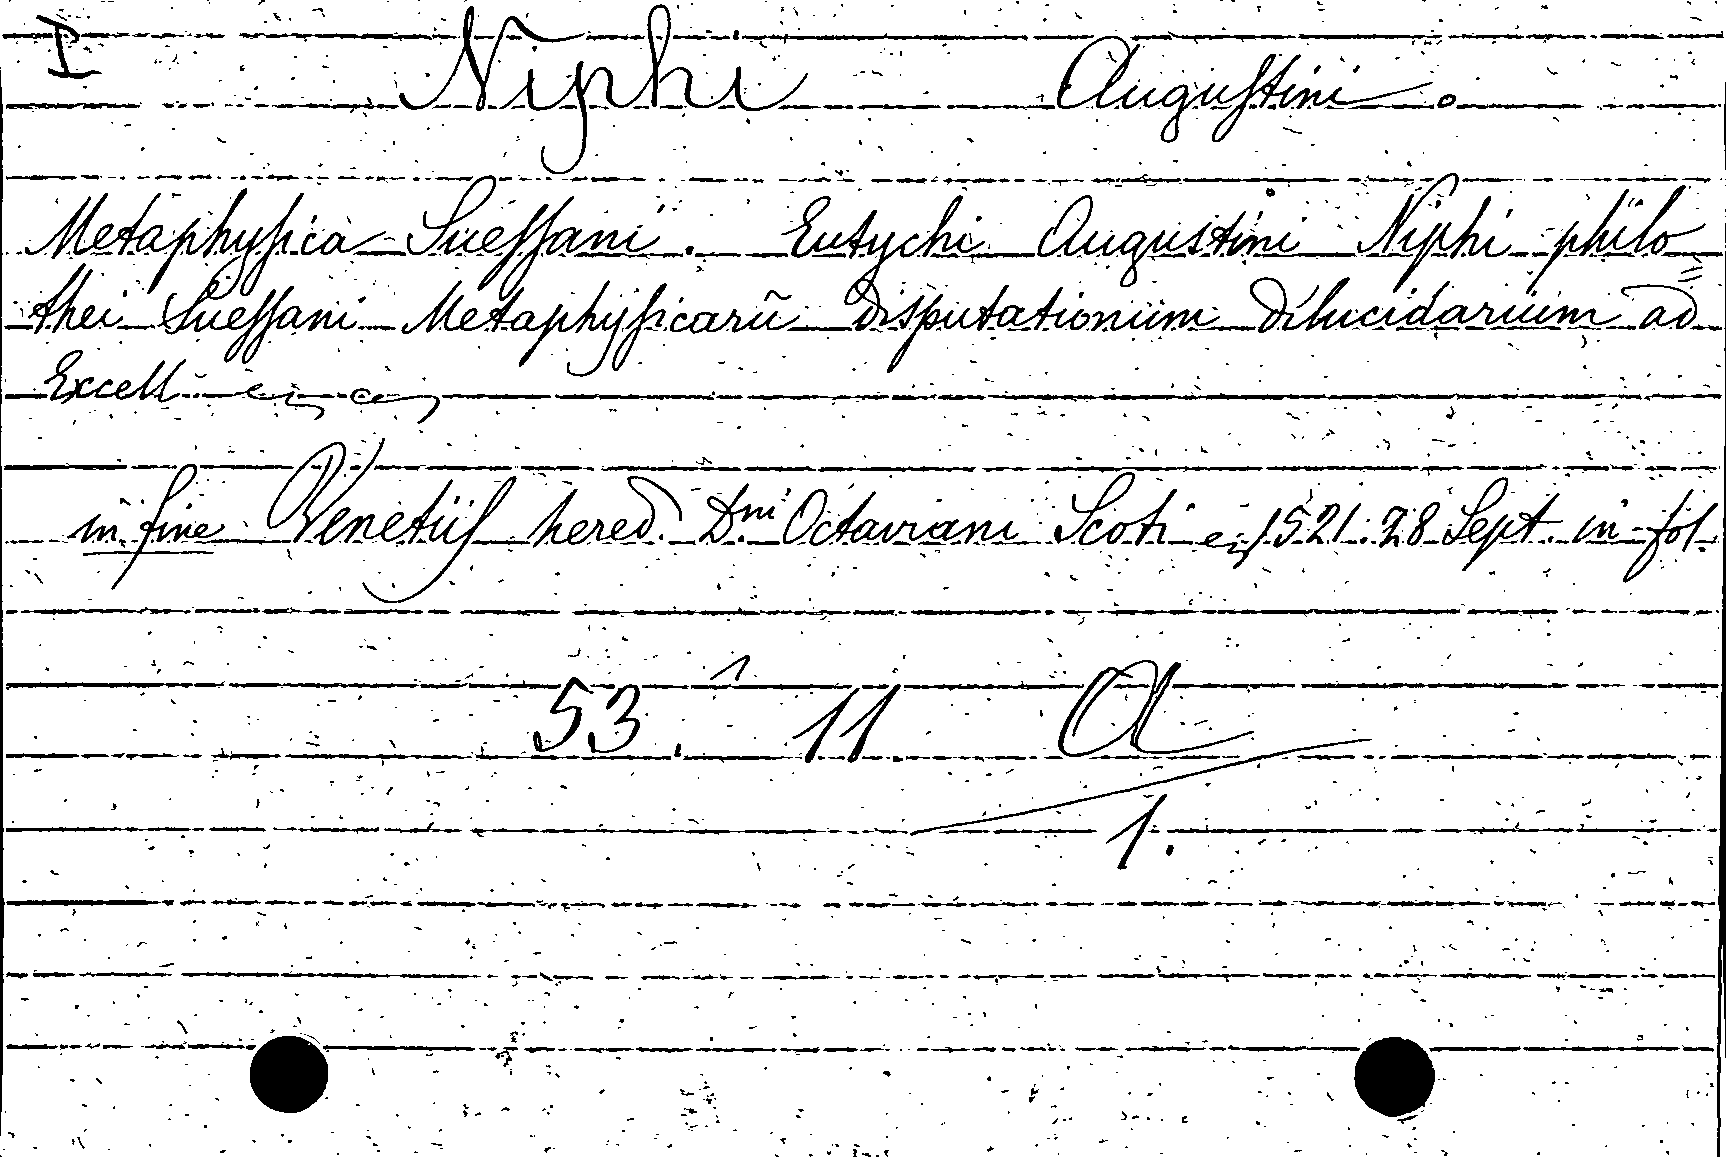 I Niphi Auguſtini.
Metaphyſica Sueſſani. Eutychi Augustini Niphi philo=
thei Sueſſani Metaphyſicarū disputationum dilucidarium ad
Excell.
in fine Venetiiſ hered. Dni Octaviani Scoti 1521. 28 Sept. in fol.
53. 11 A
1.